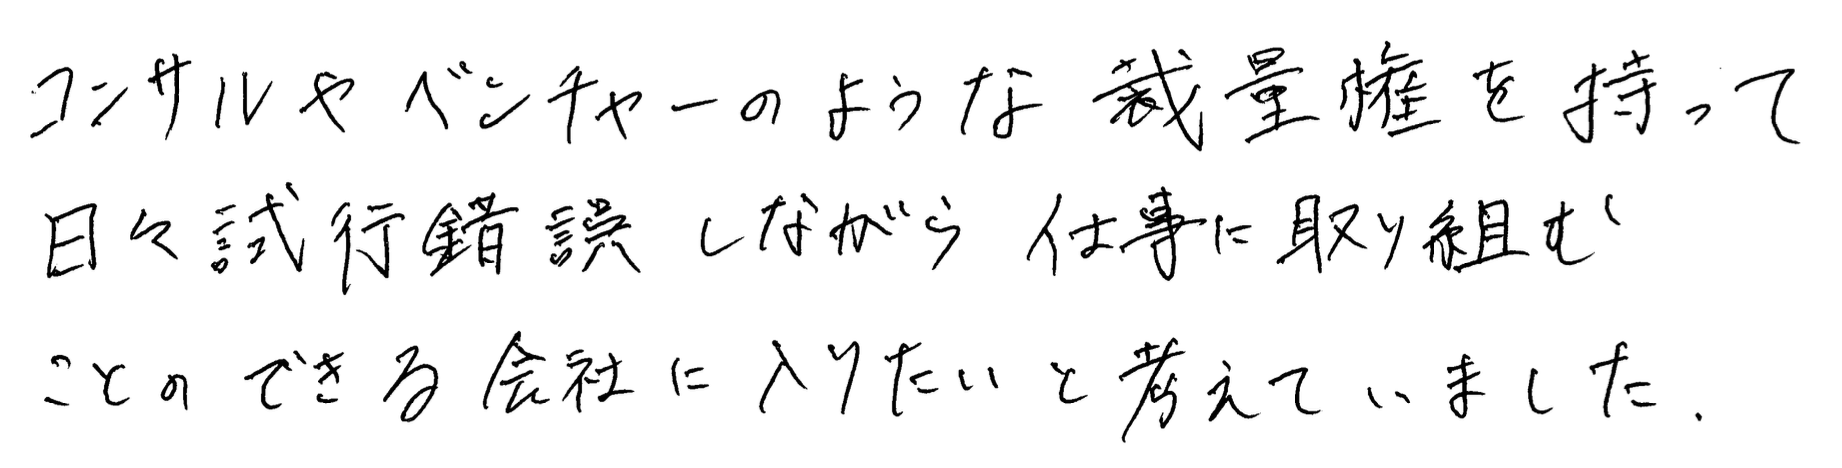 コンサルやベンチャーのような裁量権を持って
日々試行錯誤しながら仕事に取り組む
ことのできる会社に入りたいと考えていました.